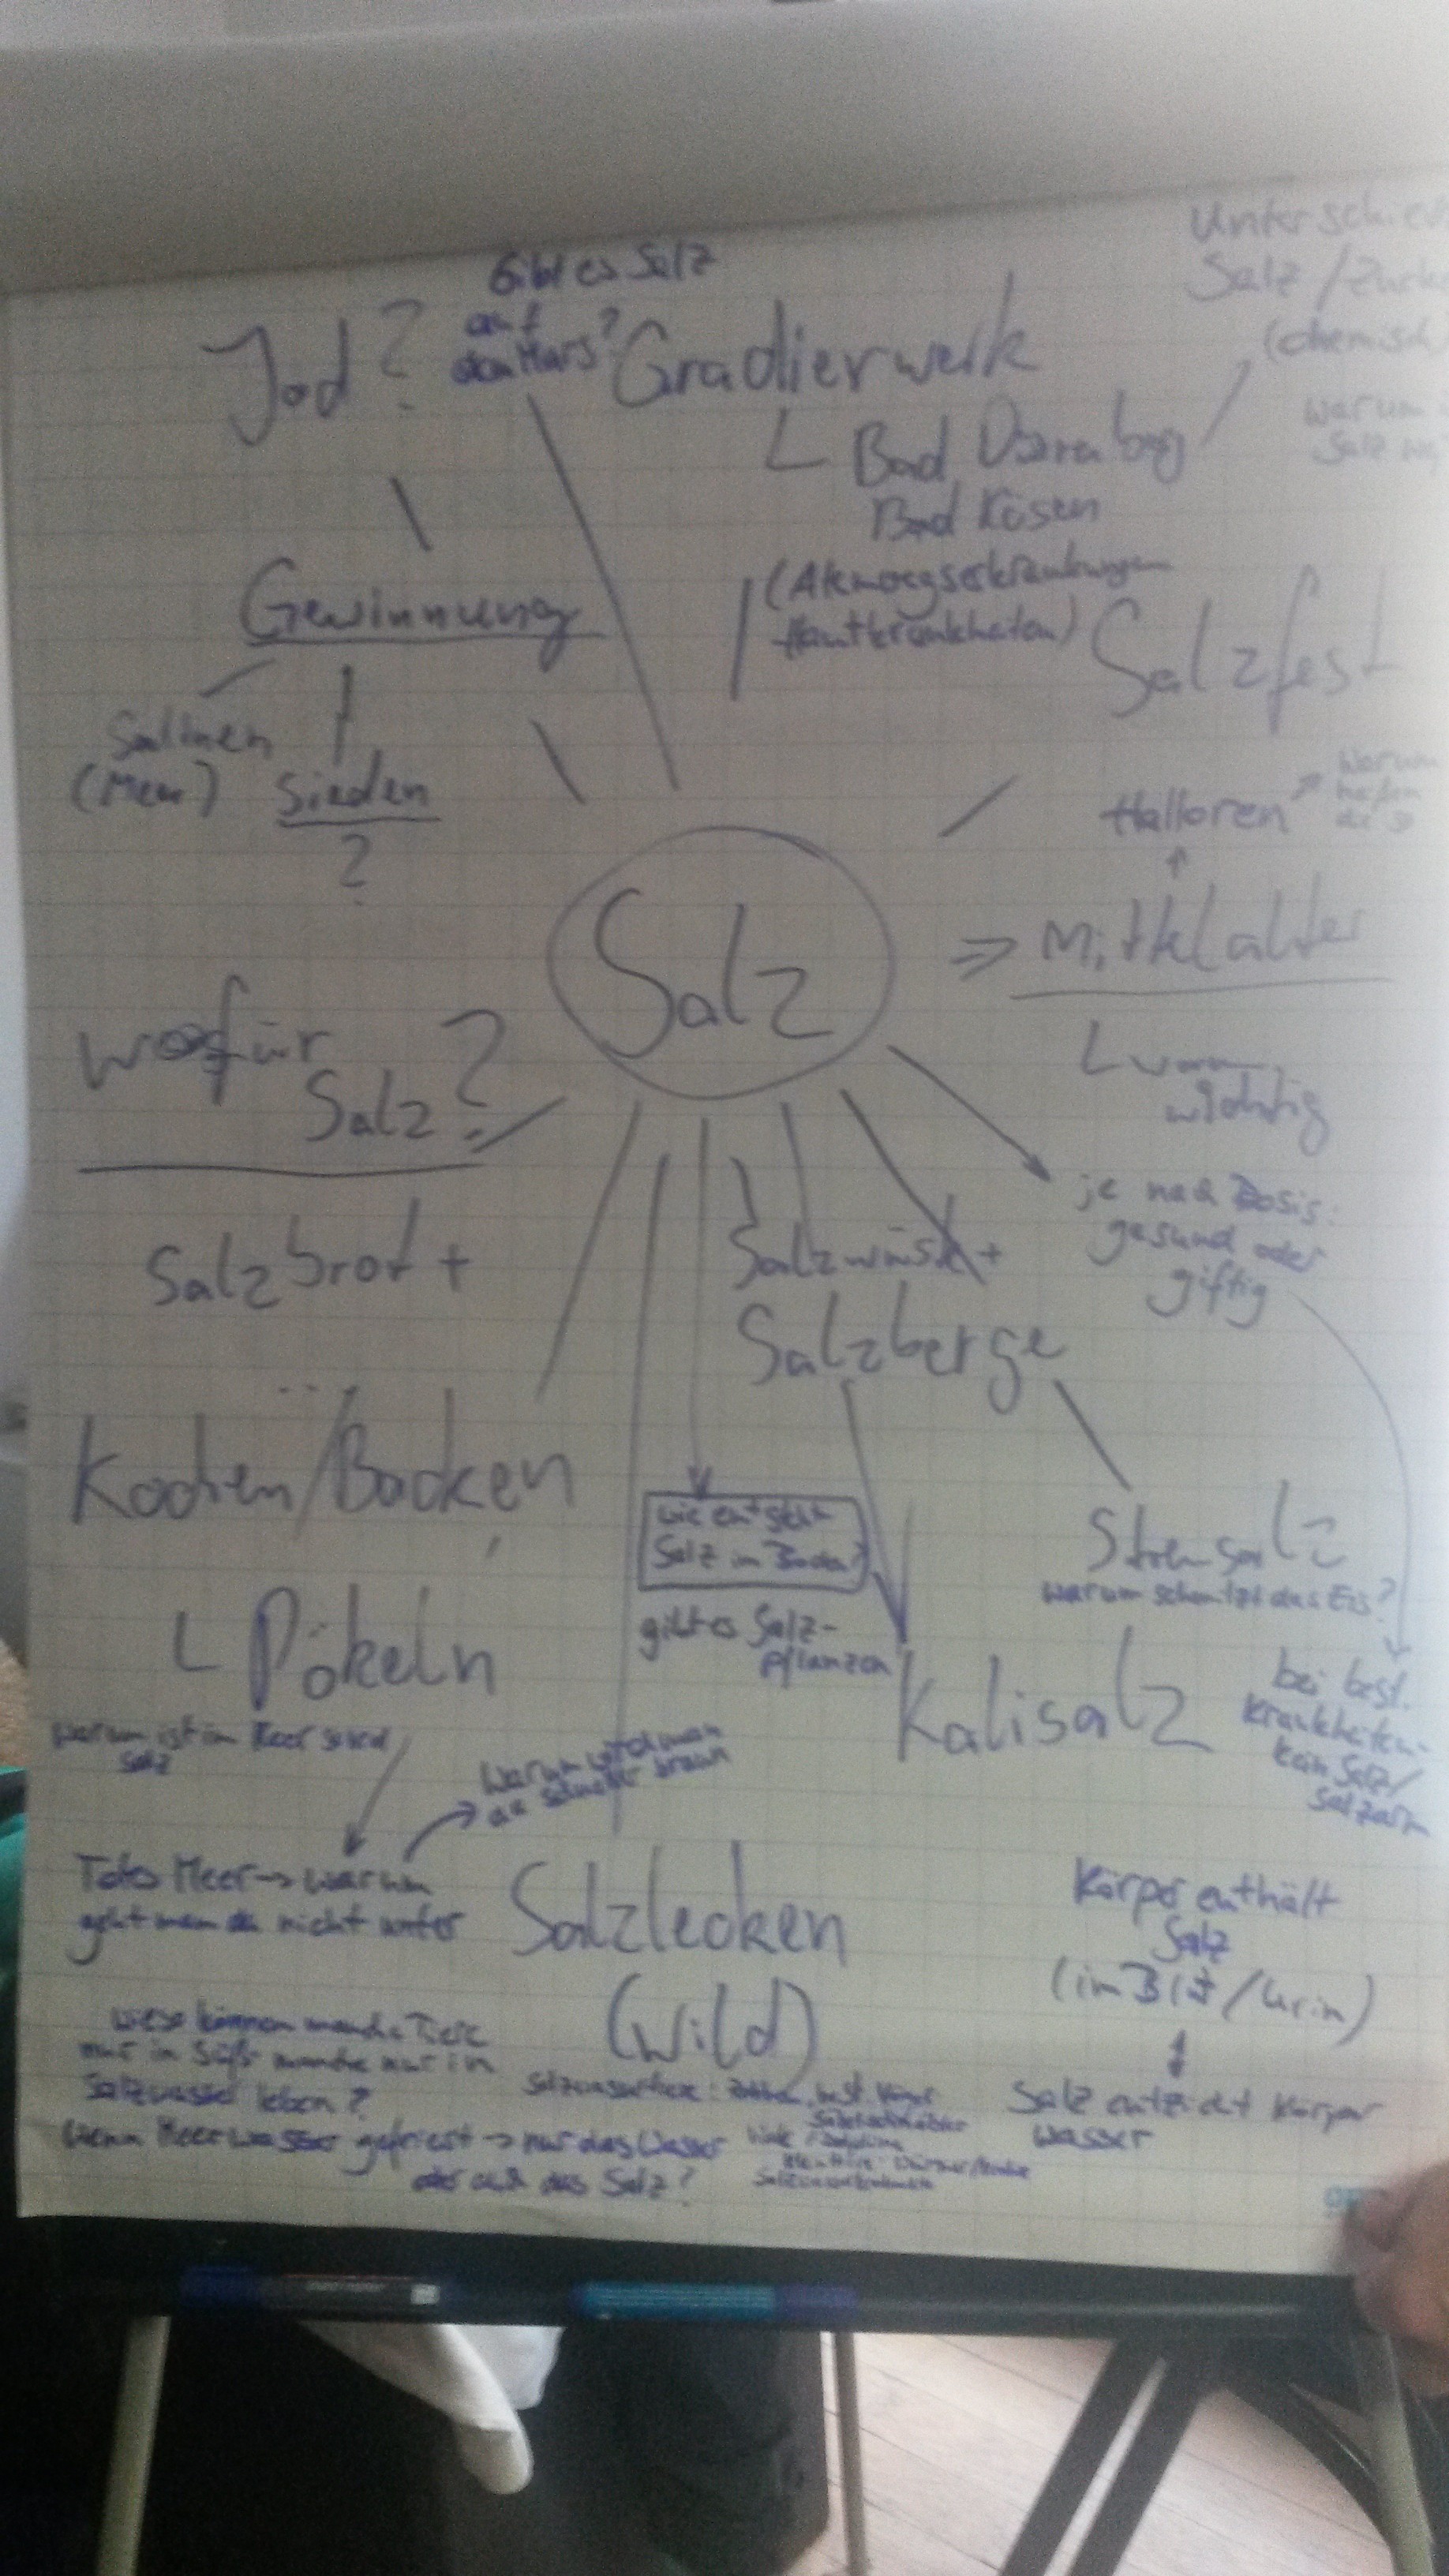 Gibt es Salz
auf
dem Mars?
Jod?
Gradierwerk
Unterschied
Salz /
(chemisch
warum
Salz
Bad
Bad Kösen
(Atemwegserkrankungen
Hautkrankheiten)
Gewinnung
Salinen
(Meer)
Sieden
?
Salzfest
Halloren
warum
Salz
=> Mittelalter
wichtig
wofür
Salz?
je nach Dosis:
gesund oder
giftig
Salzbrot +
Salzwüste +
Salzberge
Kochen/Backen
wie entsteht
Salz im Boden?
gibt es Salz-
pflanzen
Streusalz
warum schmilzt das Eis?
Pökeln
Kalisalz
bei best.
Krankheiten
kein Salz/
salzarm
warum ist im Meer soviel
Salz
warum wird man
da schneller braun
Totes Meer -> warum
geht man da nicht unter
Salzlecken
(Wild)
Körper enthält
Salz
(im Blut/Urin)
Salz entzieht Körper
Wasser
wieso können manche Tiere
nur in Süß- manche nur in
Salzwasser leben?
Salzwassertiere:
wenn Meerwasser gefriert -> nur das Wasser
oder auch das Salz?